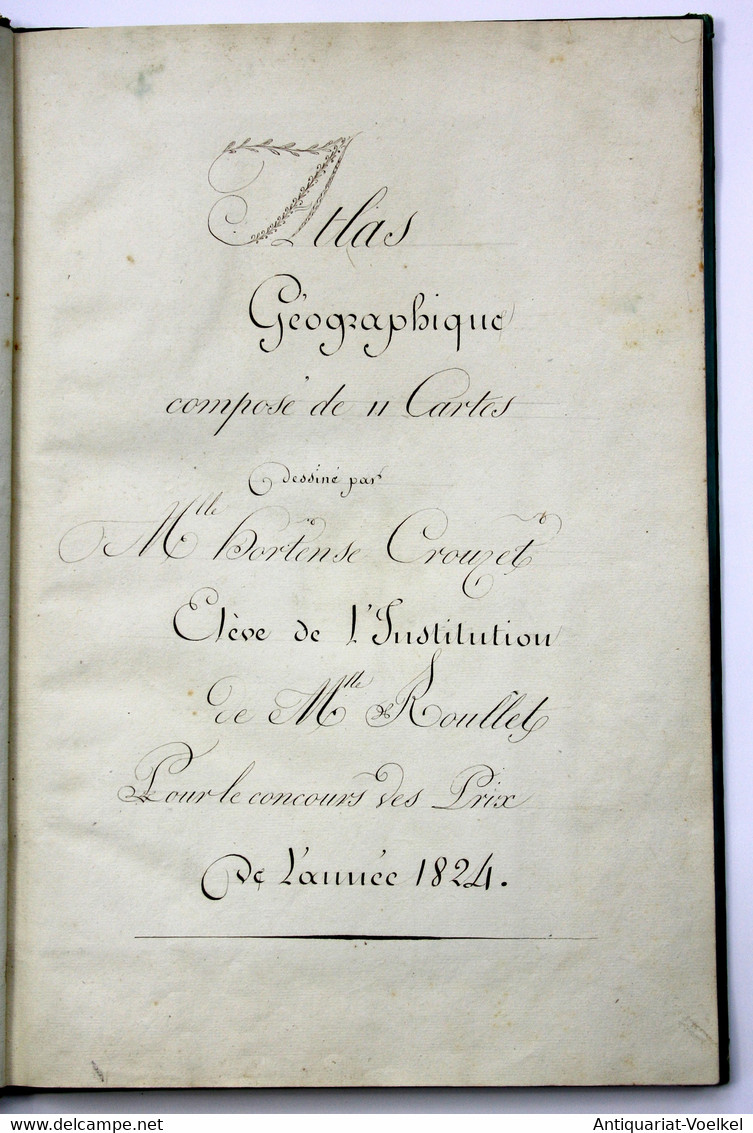 Atlas
Géographique
composé de 11 Cartes
dessiné par
Mlle hortense Crouzet
Elève de l'Institution
de Mlle Roullet
Pour le concours des Prix
De L'année 1824.
www.delcampe.net
Antiquariat-Voelkel